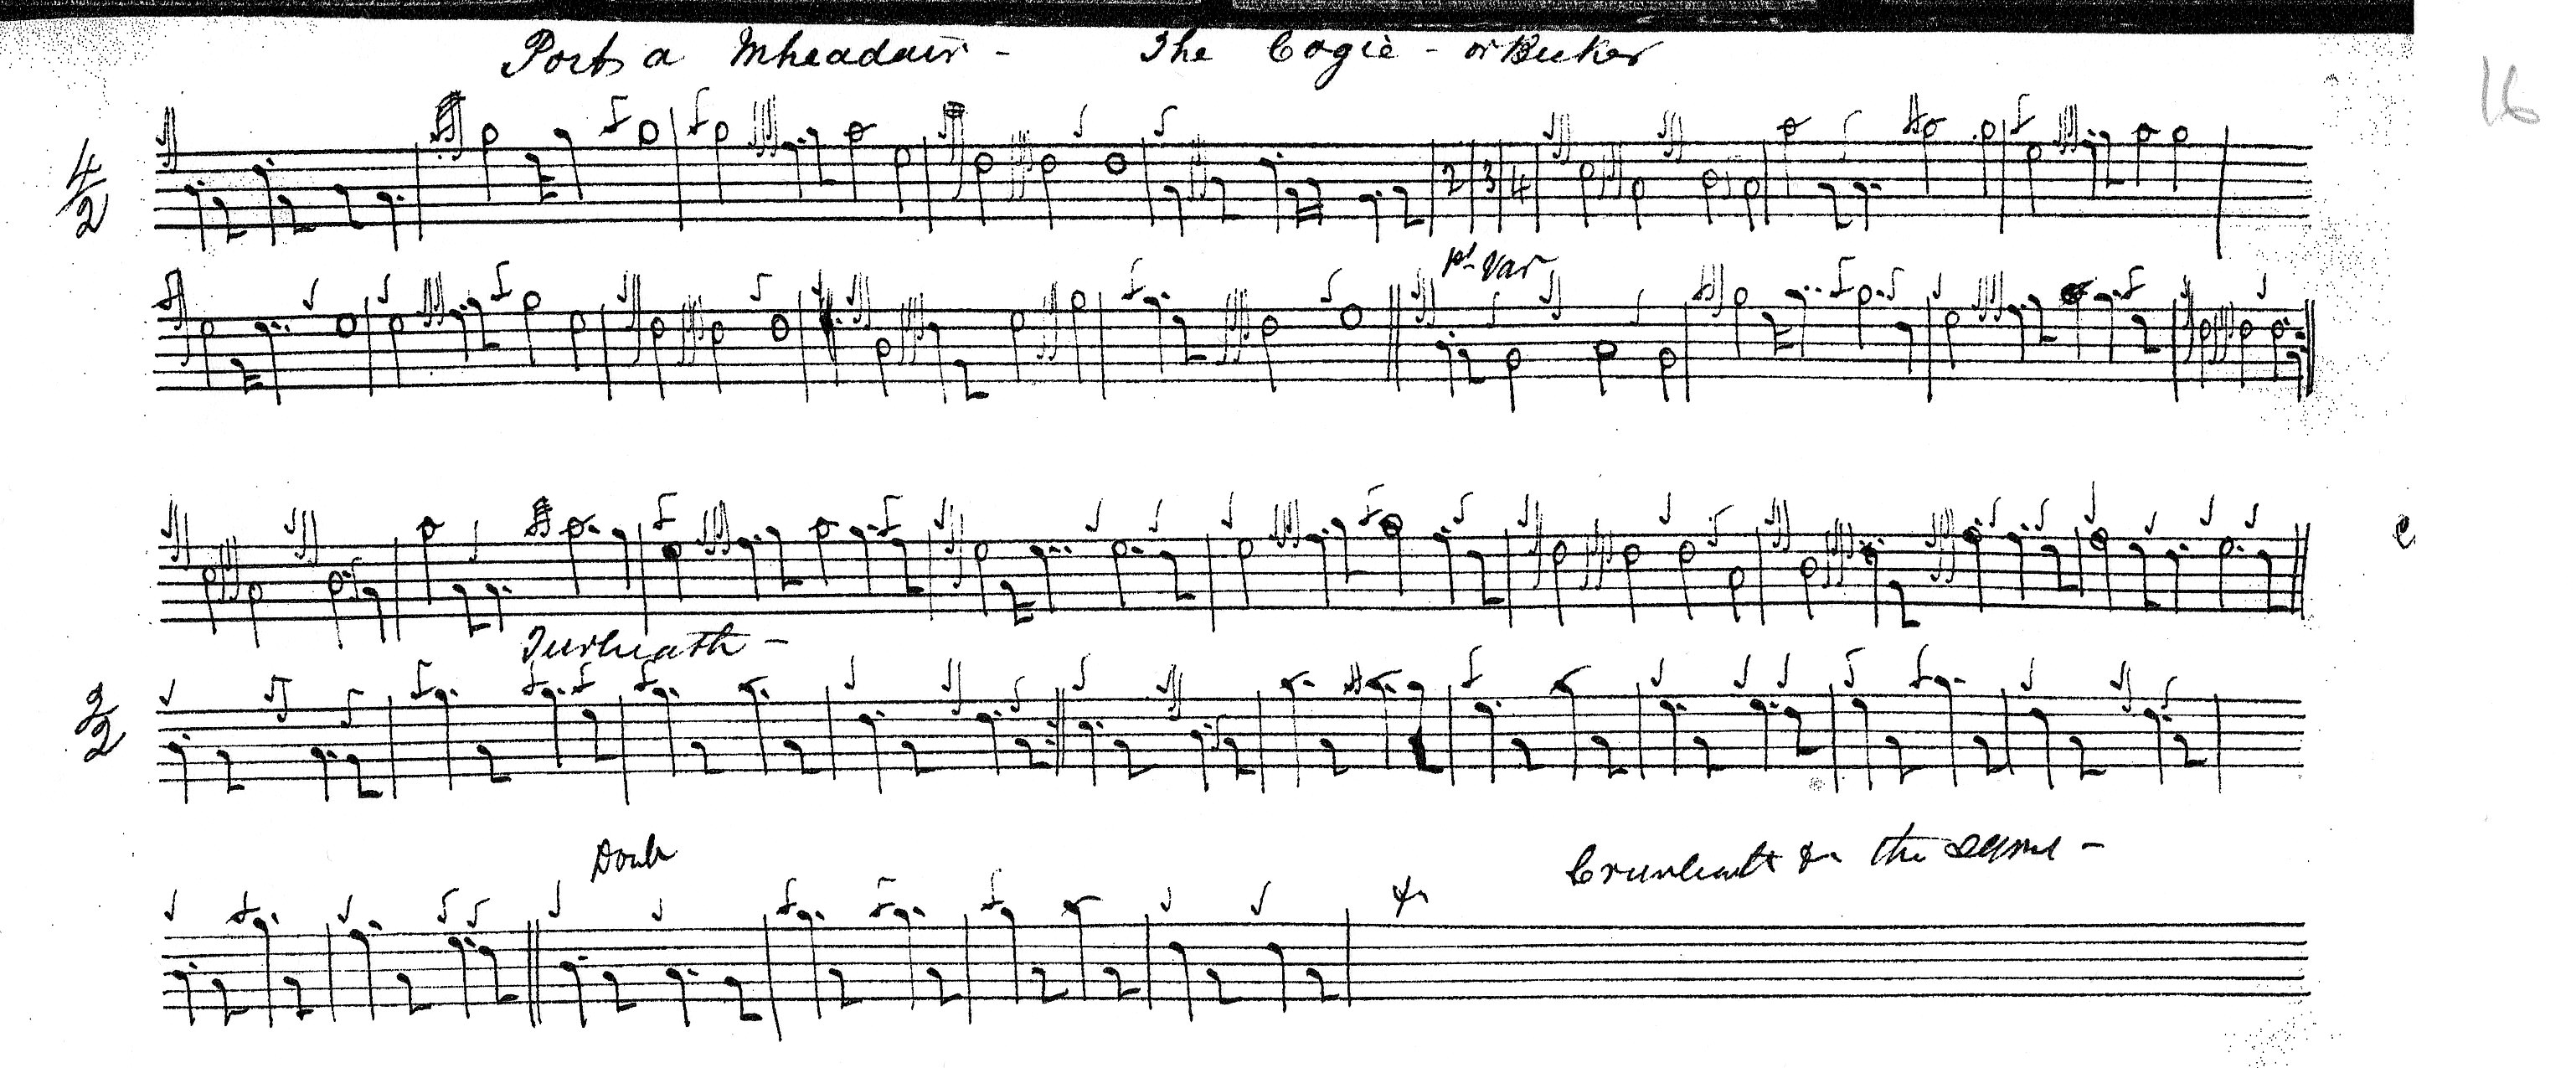 Port a Mheadair - The Cogie - or Bicker
16
4/2
2 3 4
1st Var
Turluath -
3/2
Doub
Crunluath &c the same -
&c